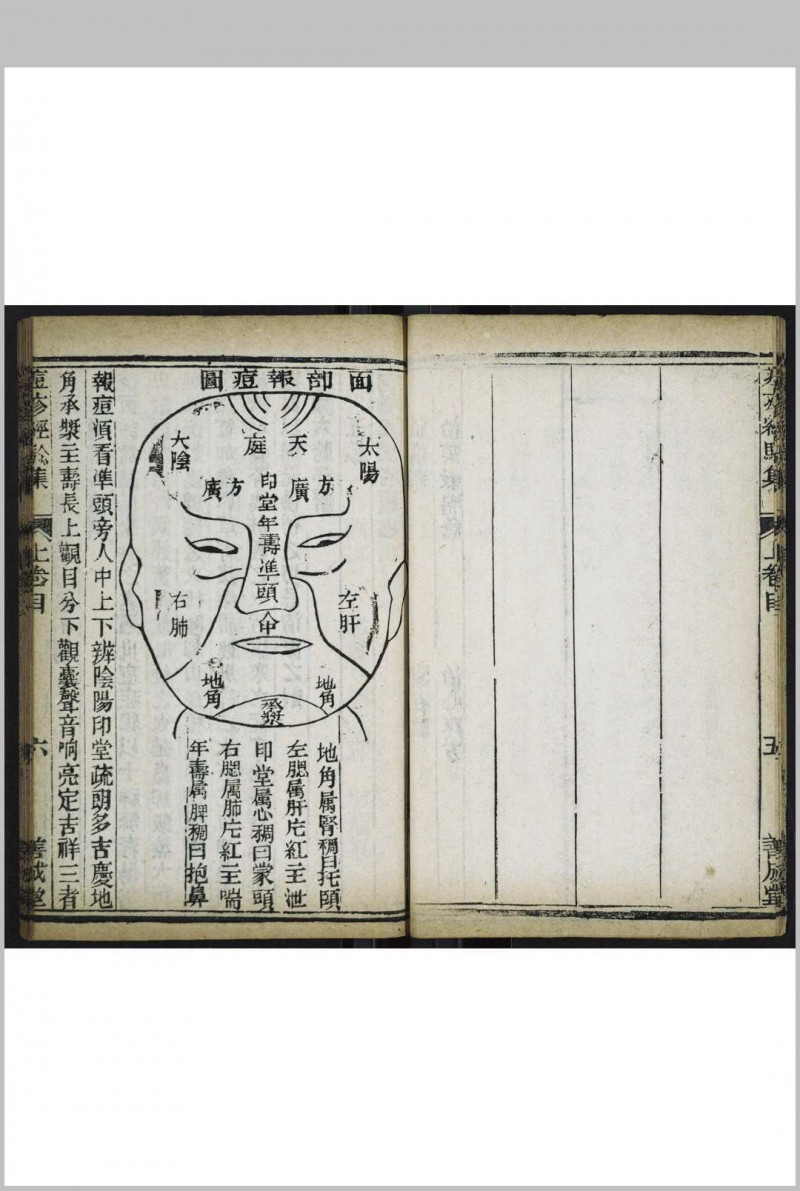 上卷目
五
善成堂
面部報痘圖
太陽
天庭
大陰
方廣
方廣
印堂年壽準頭
人中
左肝
右肺
地角
地角
承漿
地角属腎稠曰托頤
左腮属肝片紅主泄
印堂属心稠曰蒙頭
右腮属肺片紅主喘
年壽属脾稠曰抱鼻
報痘須看準頭旁人中上下辨陰陽印堂疏朗多吉慶地
角承漿主壽長上觀目分下觀囊聲音响亮定吉祥三者
痘疹經驗集
上卷目
六
善成堂